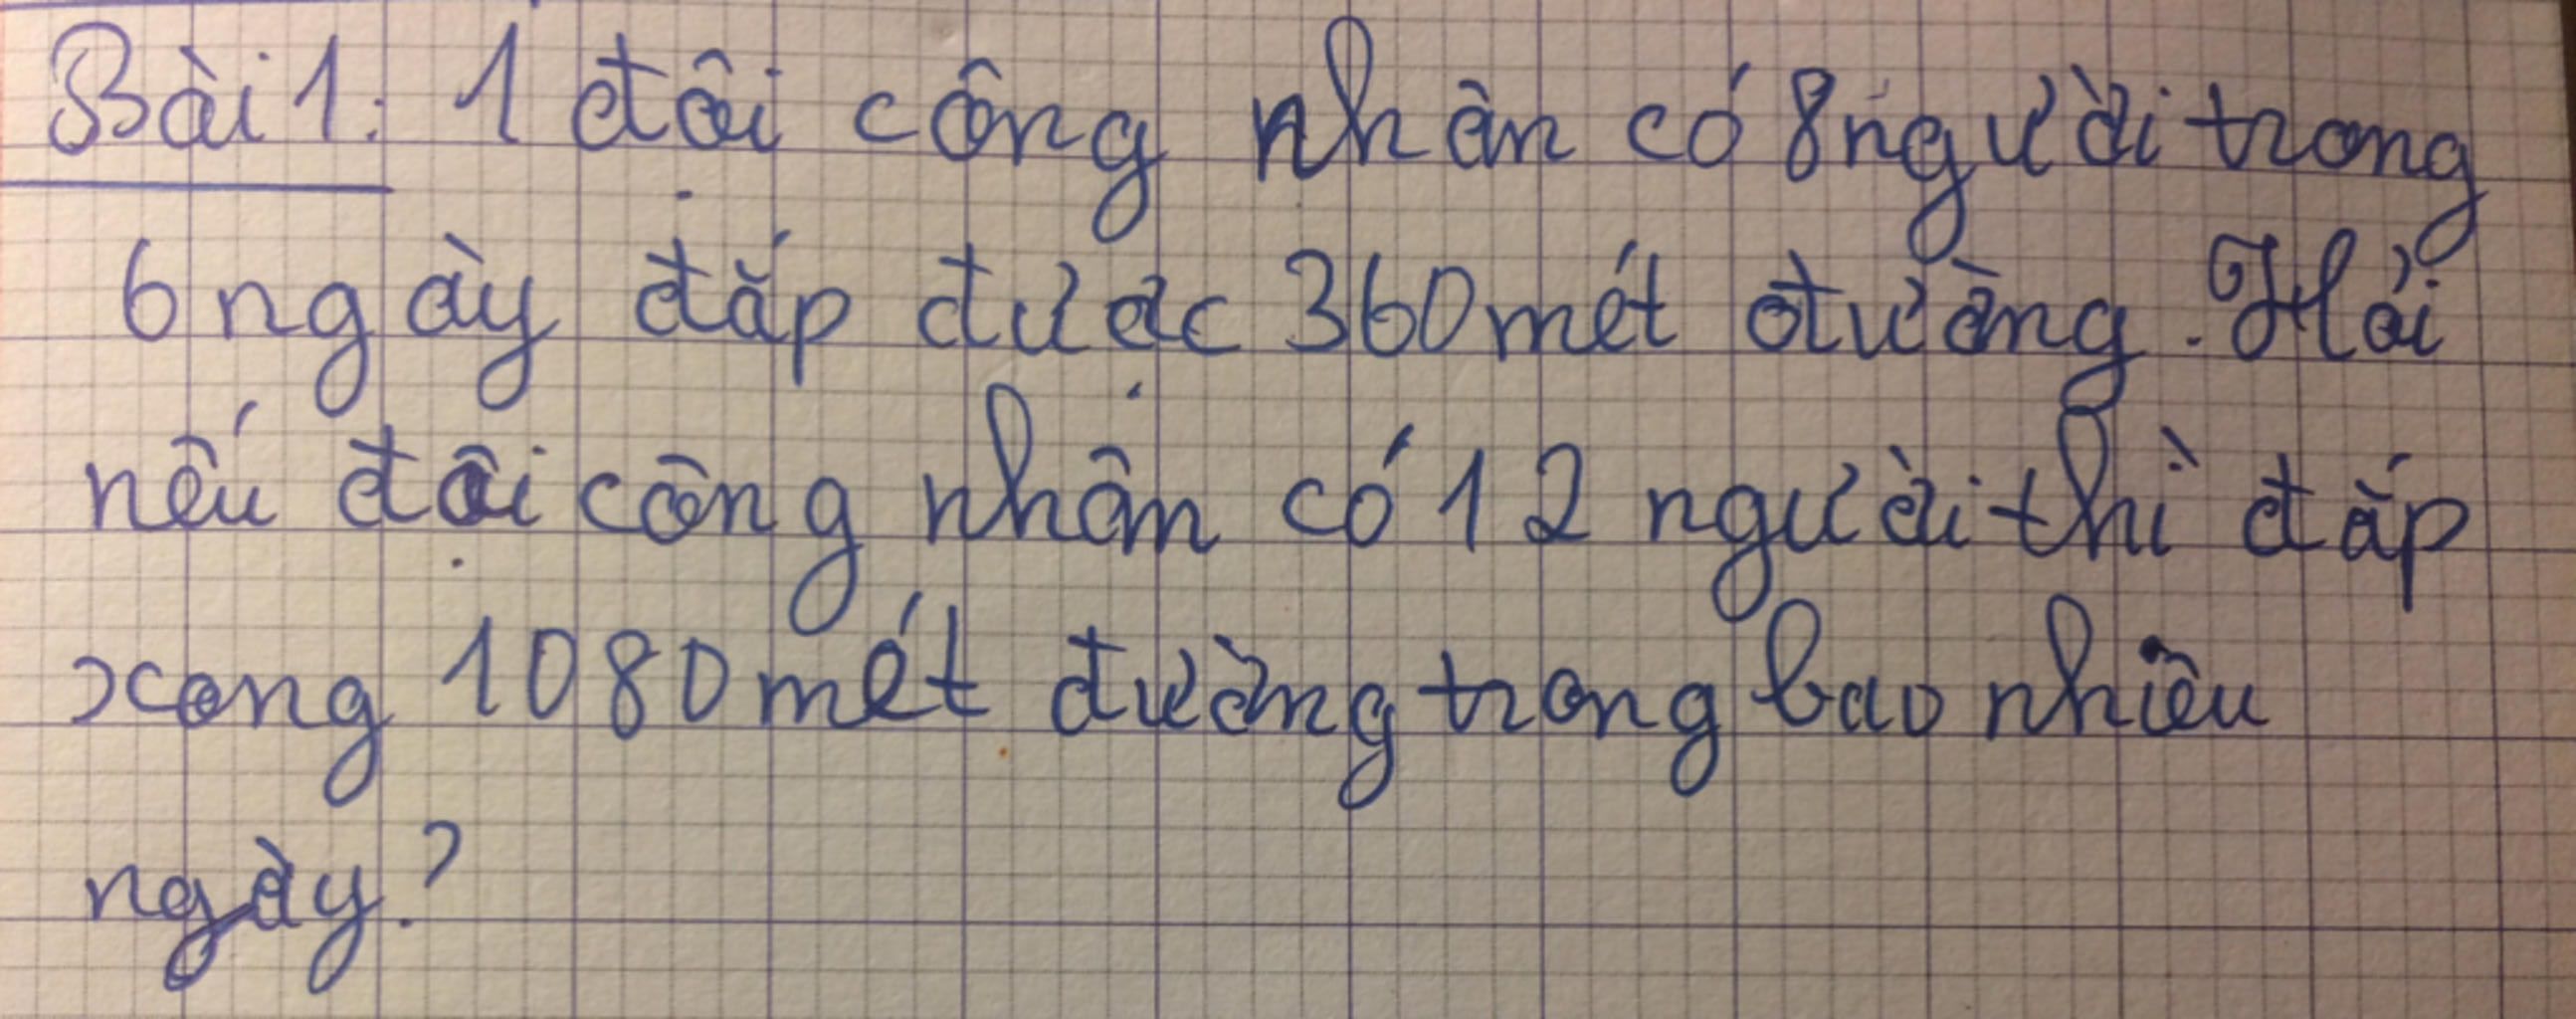 Bài 1: 1 đội công nhân có 8 người trong
6 ngày đắp được 360 mét đường. Hỏi
nếu đội công nhân có 12 người thì đắp
xong 1080 mét đường trong bao nhiêu
ngày?